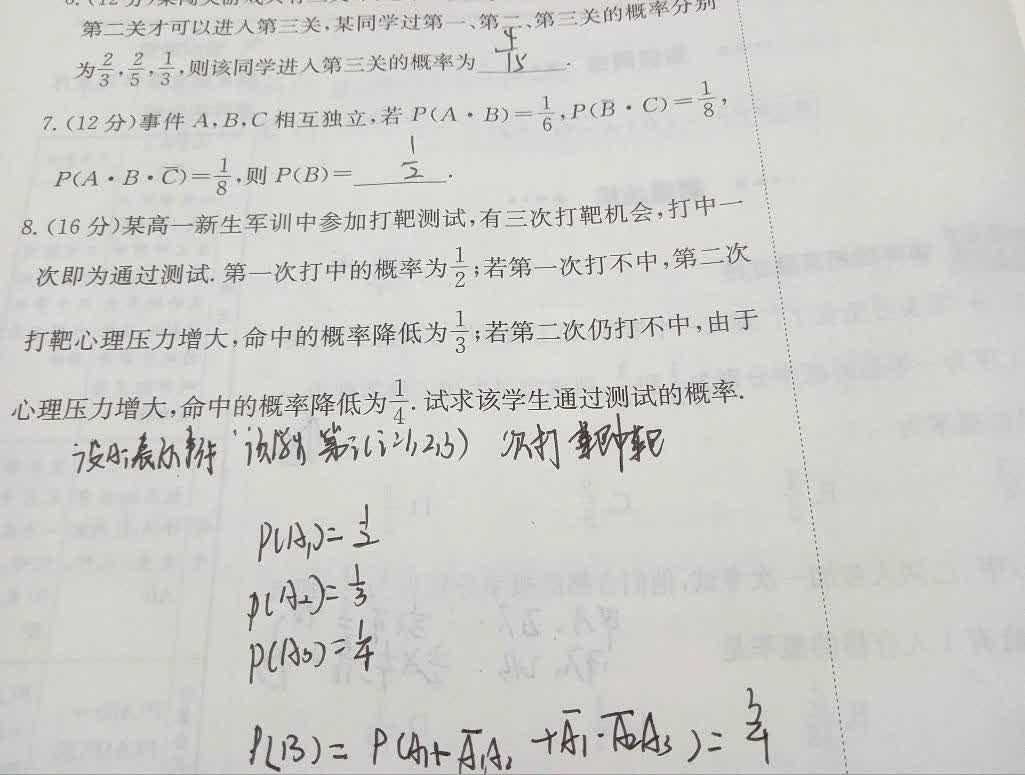 第二关才可以进入第三关,某同学过第一、第二、第三关的概率分别
为2/3,2/5,1/3,则该同学进入第三关的概率为 4/15 .
7. (12分)事件 A,B,C 相互独立,若 P(A·B)=1/6,P(B̅·C)=1/8,
P(A·B·C̅)=1/8,则 P(B)= 1/2 .
8. (16分)某高一新生军训中参加打靶测试,有三次打靶机会,打中一
次即为通过测试.第一次打中的概率为1/2;若第一次打不中,第二次
打靶心理压力增大,命中的概率降低为1/3;若第二次仍打不中,由于
心理压力增大,命中的概率降低为1/4.试求该学生通过测试的概率.
设Ai表示事件“该学生第i(i=1,2,3) 次打靶中靶
P(A₁)=1/2
P(A₂)=1/3
P(A₃)=1/4
P(B)= P(A₁+A̅₁A₂+A̅₁·A̅₂A₃)=3/4